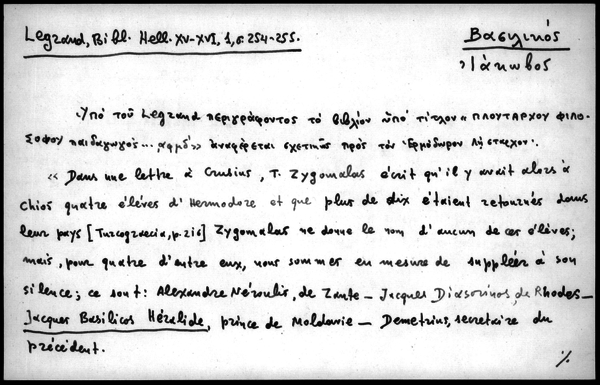 Legrand, Bibl. Hell. XV-XVI, 1, σ. 254-255.
Βασιλικός
Ἰάκωβος
Ὑπό τοῦ Legrand περιγράφοντος τό βιβλίον ὑπό τίτλον «ΠΛΟΥΤΑΡΧΟΥ ΦΙΛΟ-
ΣΟΦΟΥ παιδαγωγός... ͵αφμδ» ἀναφέρεται σχετικῶς πρός τόν Ἑρμόδωρον Λήσταρχον·
« Dans une lettre à Crusius, T. Zygomalas écrit qu'il y avait alors à
Chios quatre élèves d'Hermodore et que plus de dix étaient retournés dans
leur pays [Turcograecia, p. 216] Zygomalas ne donne le nom d'aucun de ces élèves;
mais, pour quatre d'entre eux, nous sommes en mesure de suppléer à son
silence; ce sont: Alexandre Néroulis, de Zante – Jacques Diasorinos, de Rhodes –
Jacques Basilicos Héraclide, prince de Moldavie – Demetrius, secretaire du
précédent.
./.